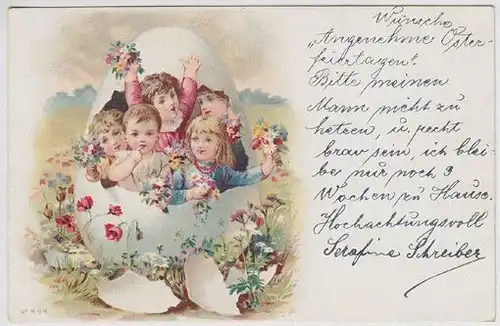 Wünsche
„Angenehme Oster-
feiertagen".
Bitte meinen
Mann nicht zu
hetzen, u. recht
brav sein, ich blei-
be nur noch 3
Wochen zu Hause.
Hochachtungsvoll
Serafine Schreiber